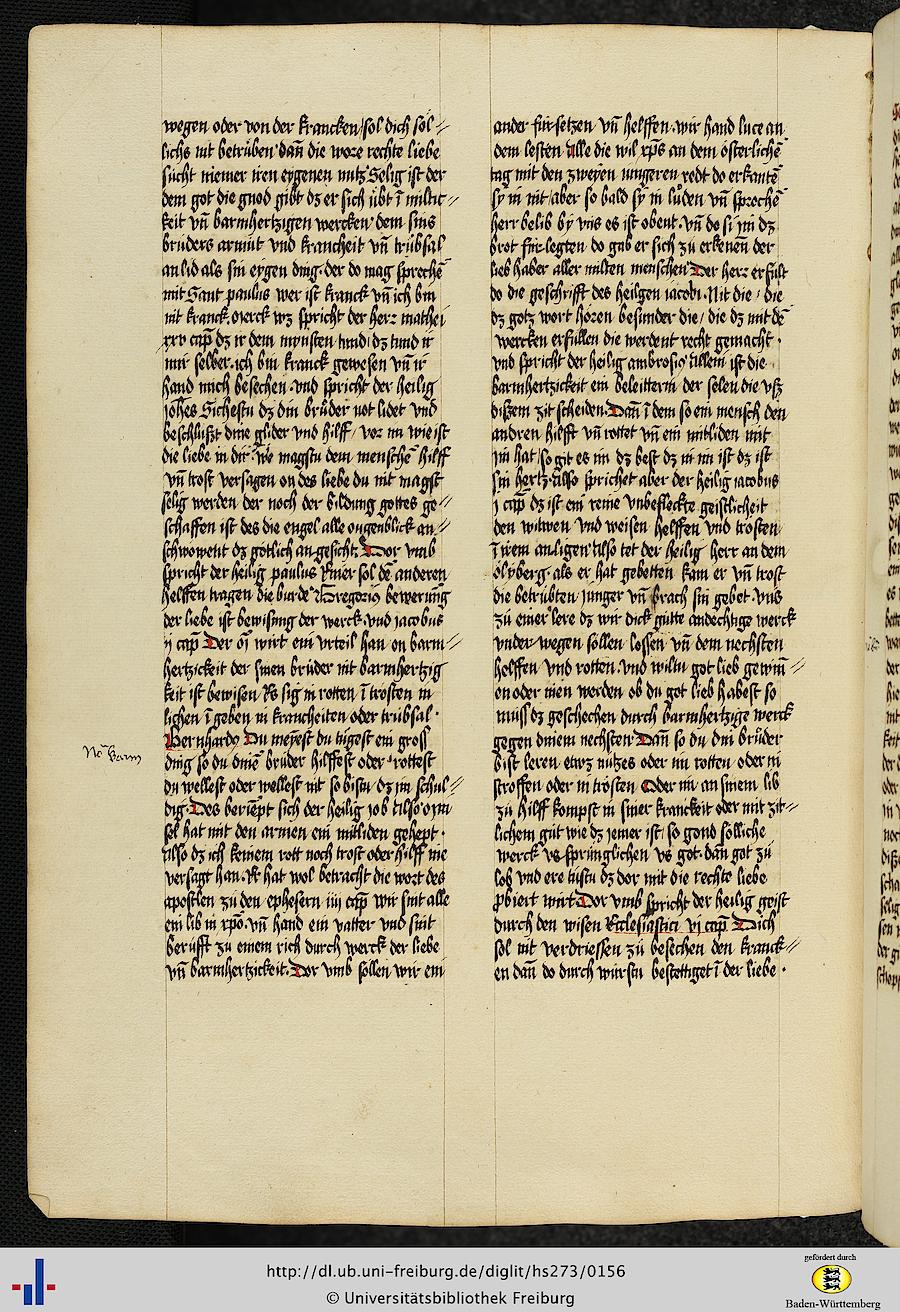 wegen oder von der krancken / sol dich sol=
lichs nit betrüben dañ die wore rechte liebe
sücht niemer iren eygenen nutz Selig ist der
dem got die gnod gibt dz er sich übt ī miltic=
keit vñ barmhertzigen wercken dem sins
brüders armüt vnd kranckeit vñ trübsal
an lid als sin eygen ding. der do mag sprechē
mit Sant paulus wer ist kranck vñ ich bin
nit kranck merck wz spricht der herr mathei
xxv cap̄ dz ir dem mynsten tund / dz tund ir
mir selber. ich bin kranck gewesen vñ ir
hand mich besechen. vnd spricht der heilig
johēs Sichestu dz din brüder not lidet vnd
beschlüßt dine glider vnd hilff / vor im wie ist
die liebe in dir we magstu dem menschē hilff
vñ trost versagen on des liebe du nit magst
selig werden der noch der bildung gottes ge=
schaffen ist des die engel alle ougenblick an=
schowent dz götlich an gesicht. Dor vmb
spricht der heilig paulus Einer sol dē anderen
helffen tragen die burde Gregorius bewerung
der liebe ist bewisung der werck vnd jacobus
ij cap̄ Der on wirt ein vrteil han on barm=
hertzickeit der sinen brüder nit barmhertzig
keit ist bewisen Es sig in rotten ī trosten in
lichen ī geben in kranckeiten oder trübsal.
Bernhardus Du meyest du tügest ein gross
ding so du dinē brüder hilffest oder rottest
du wellest oder wellest nit so bistu dz im schul=
dig. Des berüempt sich der heilig job Also
sol hat mit den armen ein mitliden gehept.
Also dz ich keinem rott noch trost oder hilff nie
versagt han. Er hat wol betracht die wort des
apostlen zu den ephesern iiij cap̄ wir sint alle
ein lib in xpō. vñ hand ein vatter vnd sint
berüfft zu einem rich durch werck der liebe
vñ barmhertzickeit. Dor vmb söllen wir ein
Nō Barm
ander für setzen vñ helffen. wir hand luce an
dem lesten Alle die wil xp̄s an dem österlichē
tag mit den zweyen jungeren redt do erkantē
sy in nit / aber so bald sy in lüden vñ sprochē
herr belib by vns es ist obent. vñ do si im dz
brot für legten do gab er sich zü erkenen der
lieb haber aller milten menschen Der herr erfült
do die geschrifft des heilgen iacobi. Nit die / die
dz gotz wort hören besunder die / die dz mit dē
wercken erfüllen die werdent recht gemacht.
vnd spricht der heilig ambrosius Allein ist die
barmhertzickeit ein beleitterin der selen die vsz
dißem zit scheiden. Dañ ī dem so ein mensch den
andren hilfft vñ rottet vñ ein mitliden mit
im hat / so git es im dz best dz in im ist dz ist
sin hertz. Also sprichet aber der heilig iacobus
j cap̄ dz ist ein reine vnbefleckte geistlicheit
den witwen vnd weisen helffen vnd trosten
ī irem anligen Also tet der heilig herr an dem
ölyberg. als er hat gebetten kam er vñ trost
die betrübten junger vñ brach sin gebet. vns
zü einer lere dz wir dick gütte andechtige werck
vnder wegen söllen lossen vñ dem nechsten
helffen vnd rotten. vnd wiltu got lieb gewiñ=
on oder inen werden ob du got lieb habest so
müss dz geschechen durch barmhertzige werck
gegen dinem nechsten Dañ so du din brüder
bist leren etwz nützes oder im rotten oder in
stroffen oder in trösten Oder im an sinem lib
zü hilff kompst in siner kranckeit oder mit zit=
lichem güt wie dz jemer ist / so gond sölliche
werck vs sprünglichen vs got. dañ got zü
lob vnd ere tüstu dz dor mit die rechte liebe
probiert wirt Dor vmb spricht der heilig geist
durch den wisen Ecclesiastici vj cap̄ Dich
sol nit verdriessen zü besechen den kranck=
en dañ do durch wirstu bestettiget ī der liebe.
http://dl.ub.uni-freiburg.de/diglit/hs273/0156
© Universitätsbibliothek Freiburg
gefördert durch
Baden-Württemberg